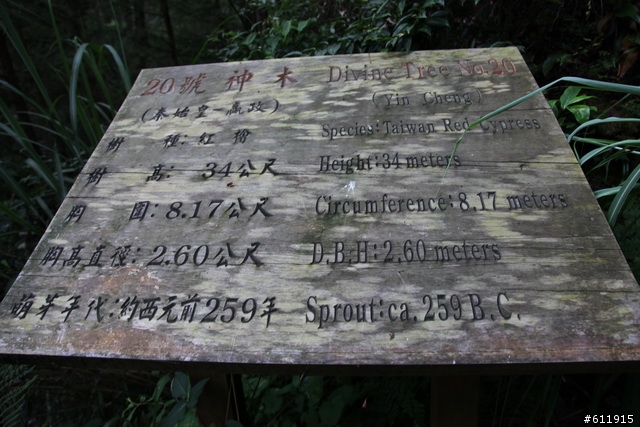 20號 神木 Divine Tree No.20
(秦始皇-嬴政) (Yin Cheng)
樹 種: 紅檜 Species: Taiwan Red Cypress
樹 高: 34公尺 Height: 34 meters
胸 圍: 8.17公尺 Circumference: 8.17 meters
胸高直徑: 2.60公尺 D.B.H: 2.60 meters
萌芽年代: 約西元前259年 Sprout: ca. 259 B.C.
#611915